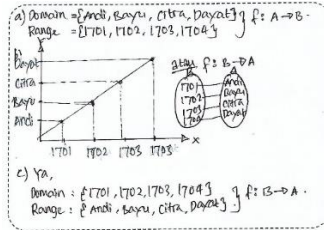 a) Domain = {Andi, Bayu, Citra, Dayat} } f: A → B.
Range = {1701, 1702, 1703, 1704}
b)
Dayat
Citra
Bayu
Andi
1701 1702 1703 1703 x
atau f: B → A
1701 Andi
1702 Bayu
1703 Citra
1704 Dayat
c) Ya,
Domain : {1701, 1702, 1703, 1704} } f: B → A.
Range : {Andi, Bayu, Citra, Dayat}